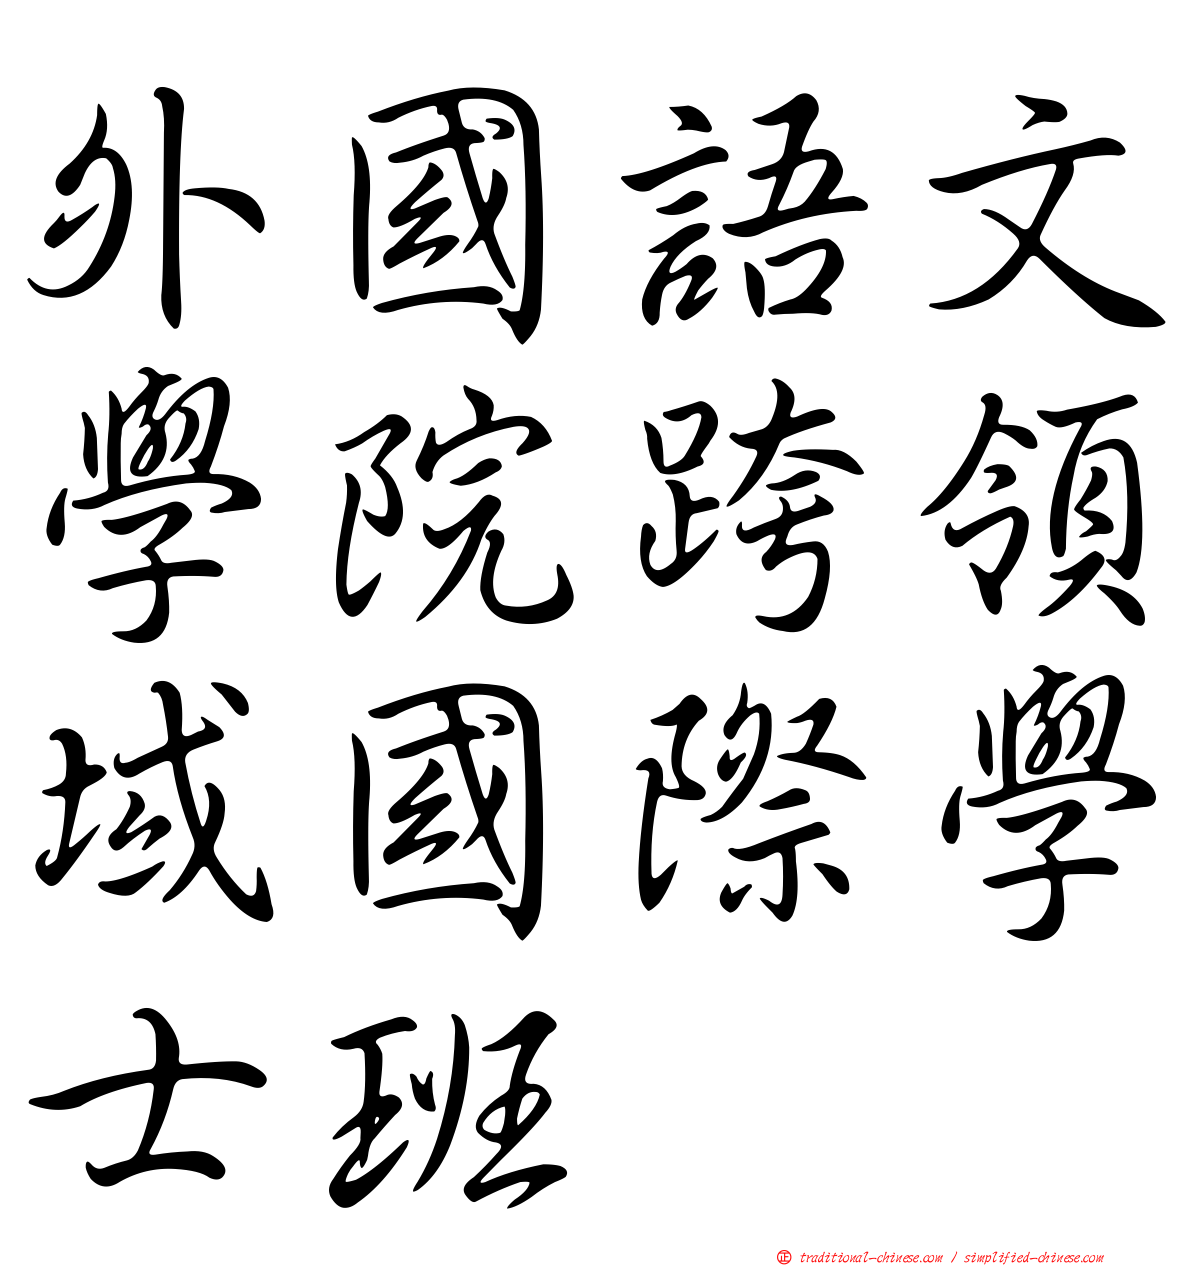 外國語文
學院跨領
域國際學
士班
正 traditional-chinese.com / simplified-chinese.com